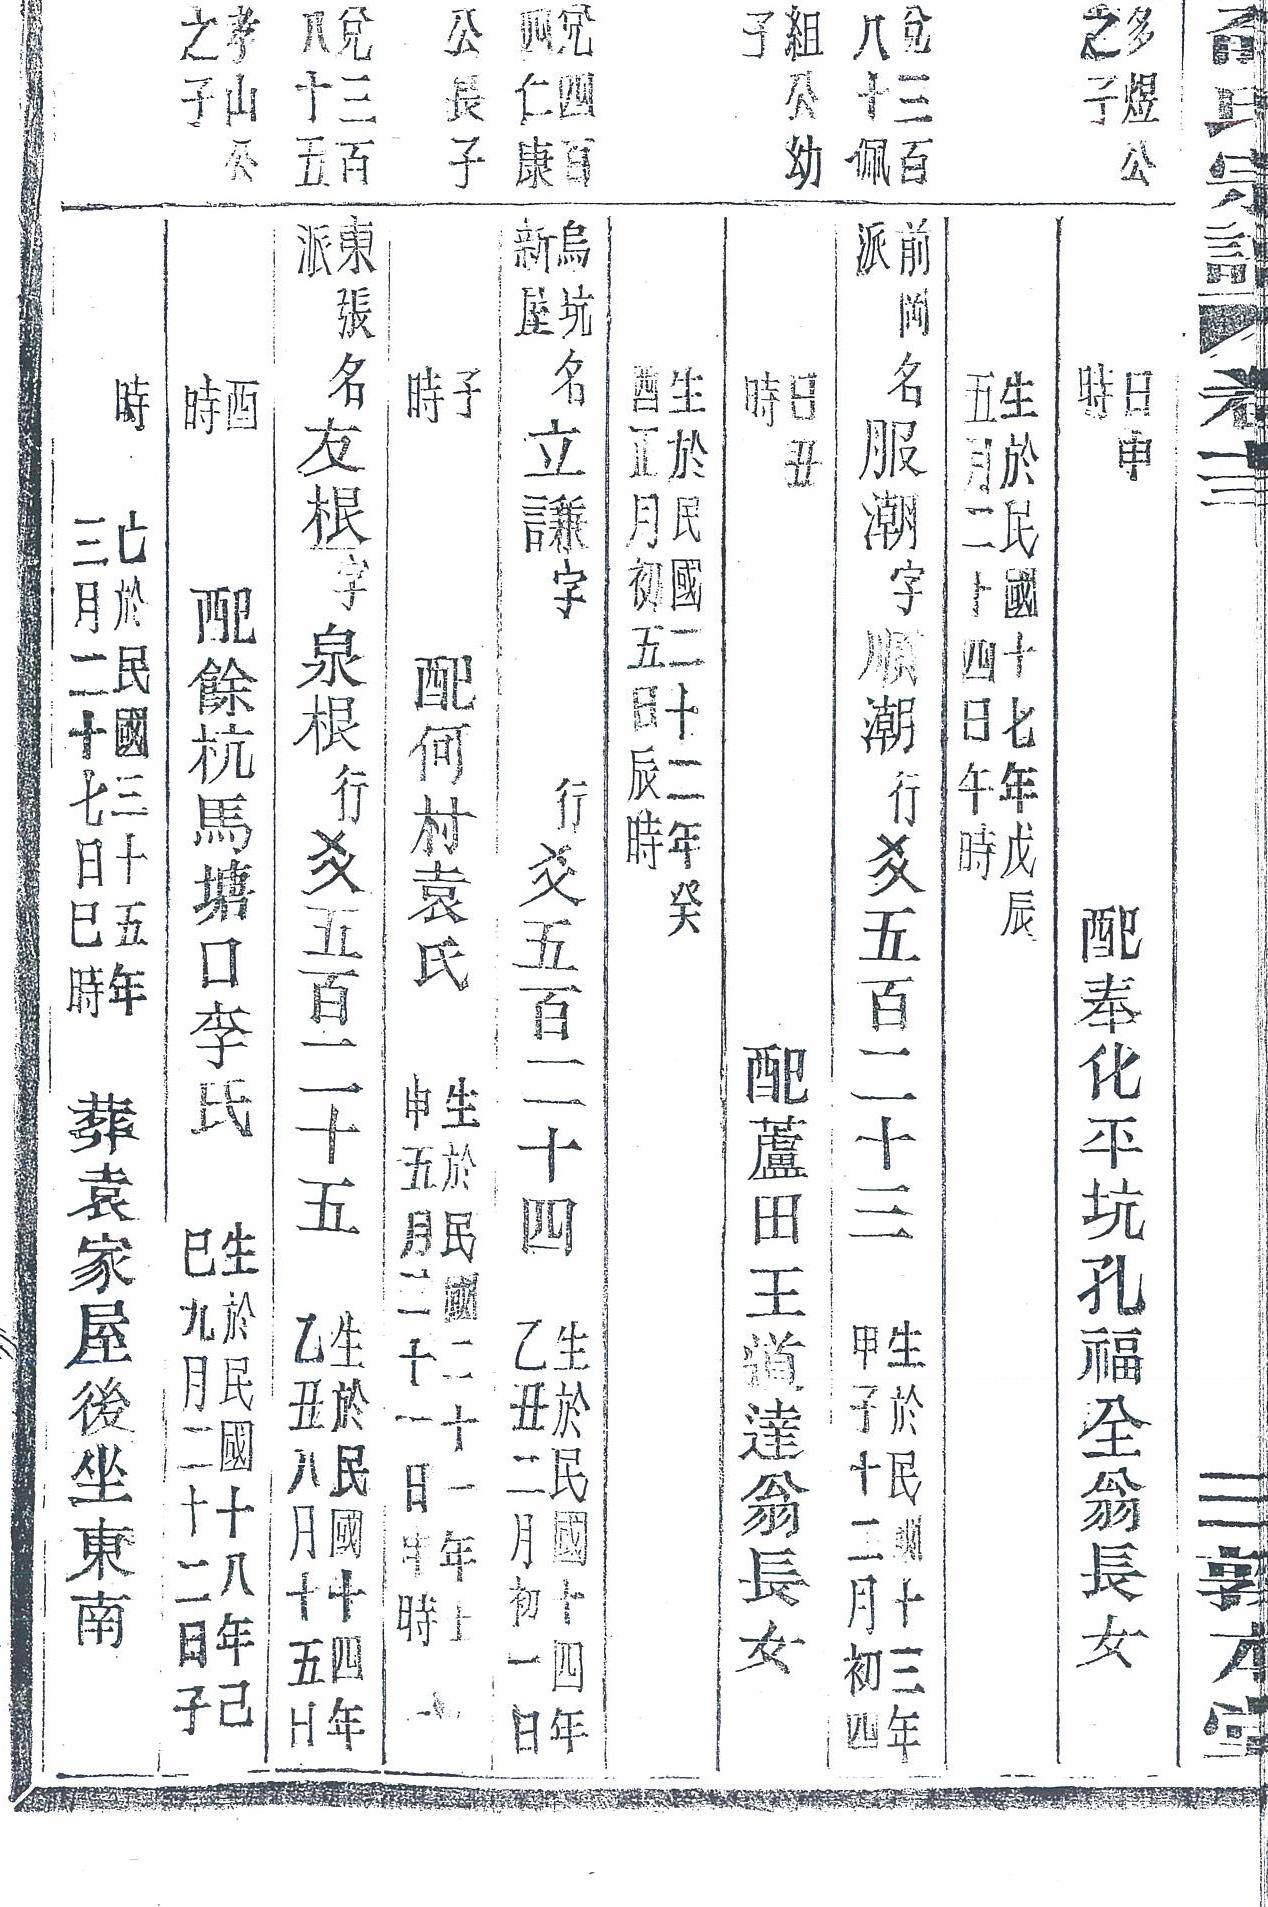 氏宗譜
卷十三
三
敦本堂
多煜公
之子
日申
時
配奉化平坑孔福全翁長女
生於民國十七年戊辰
五月二十四日午時
兌三百
八十佩
前岡
派
名服潮字順潮行爻五百二十三
生於民國十三年
甲子十二月初四
組公幼
子
日丑
時
配蘆田王道達翁長女
生於民國二十二年癸
酉正月初五日辰時
兌四百
四仁康
烏坑
新屋
名立謙字
行爻五百二十四
生於民國十四年
乙丑二月初一日
公長子
子
時
配何村袁氏
生於民國二十一年壬
申五月二十一日申時
兌三百
八十五
東張
派
名友根字泉根行爻五百二十五
生於民國十四年
乙丑八月十五日
孝山公
之子
酉
時
配餘杭馬塘口李氏
生於民國十八年己
巳九月二十二日子
時
亡於民國三十五年
三月二十七日巳時
葬袁家屋後坐東南